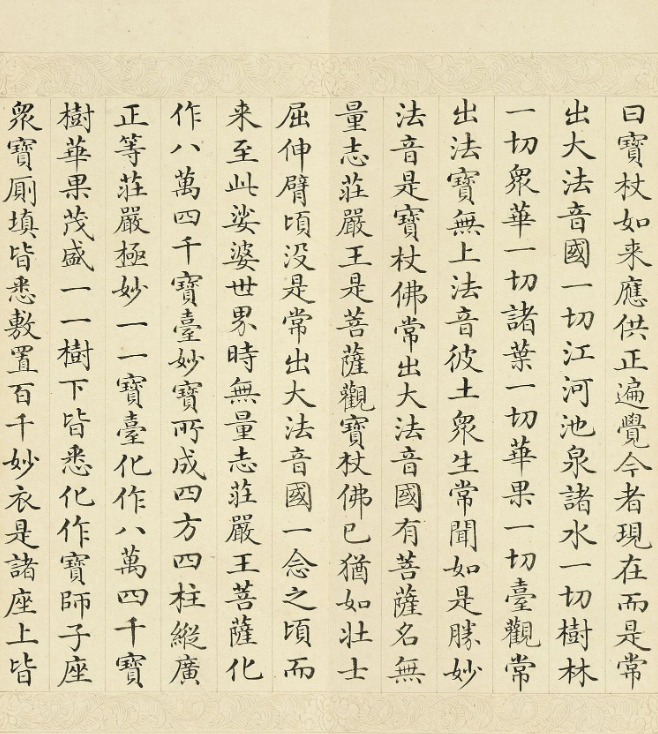 曰寶杖如来應供正遍覺今者現在而是常
出大法音國一切江河池泉諸水一切樹林
一切眾華一切諸葉一切華果一切臺觀常
出法寶無上法音彼土眾生常聞如是勝妙
法音是寶杖佛常出大法音國有菩薩名無
量志莊嚴王是菩薩觀寶杖佛已猶如壯士
屈伸臂頃没是常出大法音國一念之頃而
来至此娑婆世界時無量志莊嚴王菩薩化
作八萬四千寶臺妙寶所成四方四柱縱廣
正等莊嚴極妙一一寶臺化作八萬四千寶
樹華果茂盛一一樹下皆悉化作寶師子座
眾寶厠填皆悉敷置百千妙衣是諸座上皆